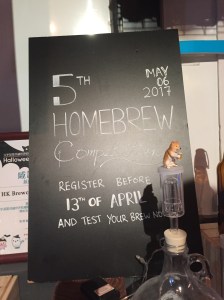 5TH
MAY
06
2017
HOMEBREW
Competition
REGISTER BEFORE
13TH OF APRIL
AND TEST YOUR BREW NOW
Halloween
HK Brewcr